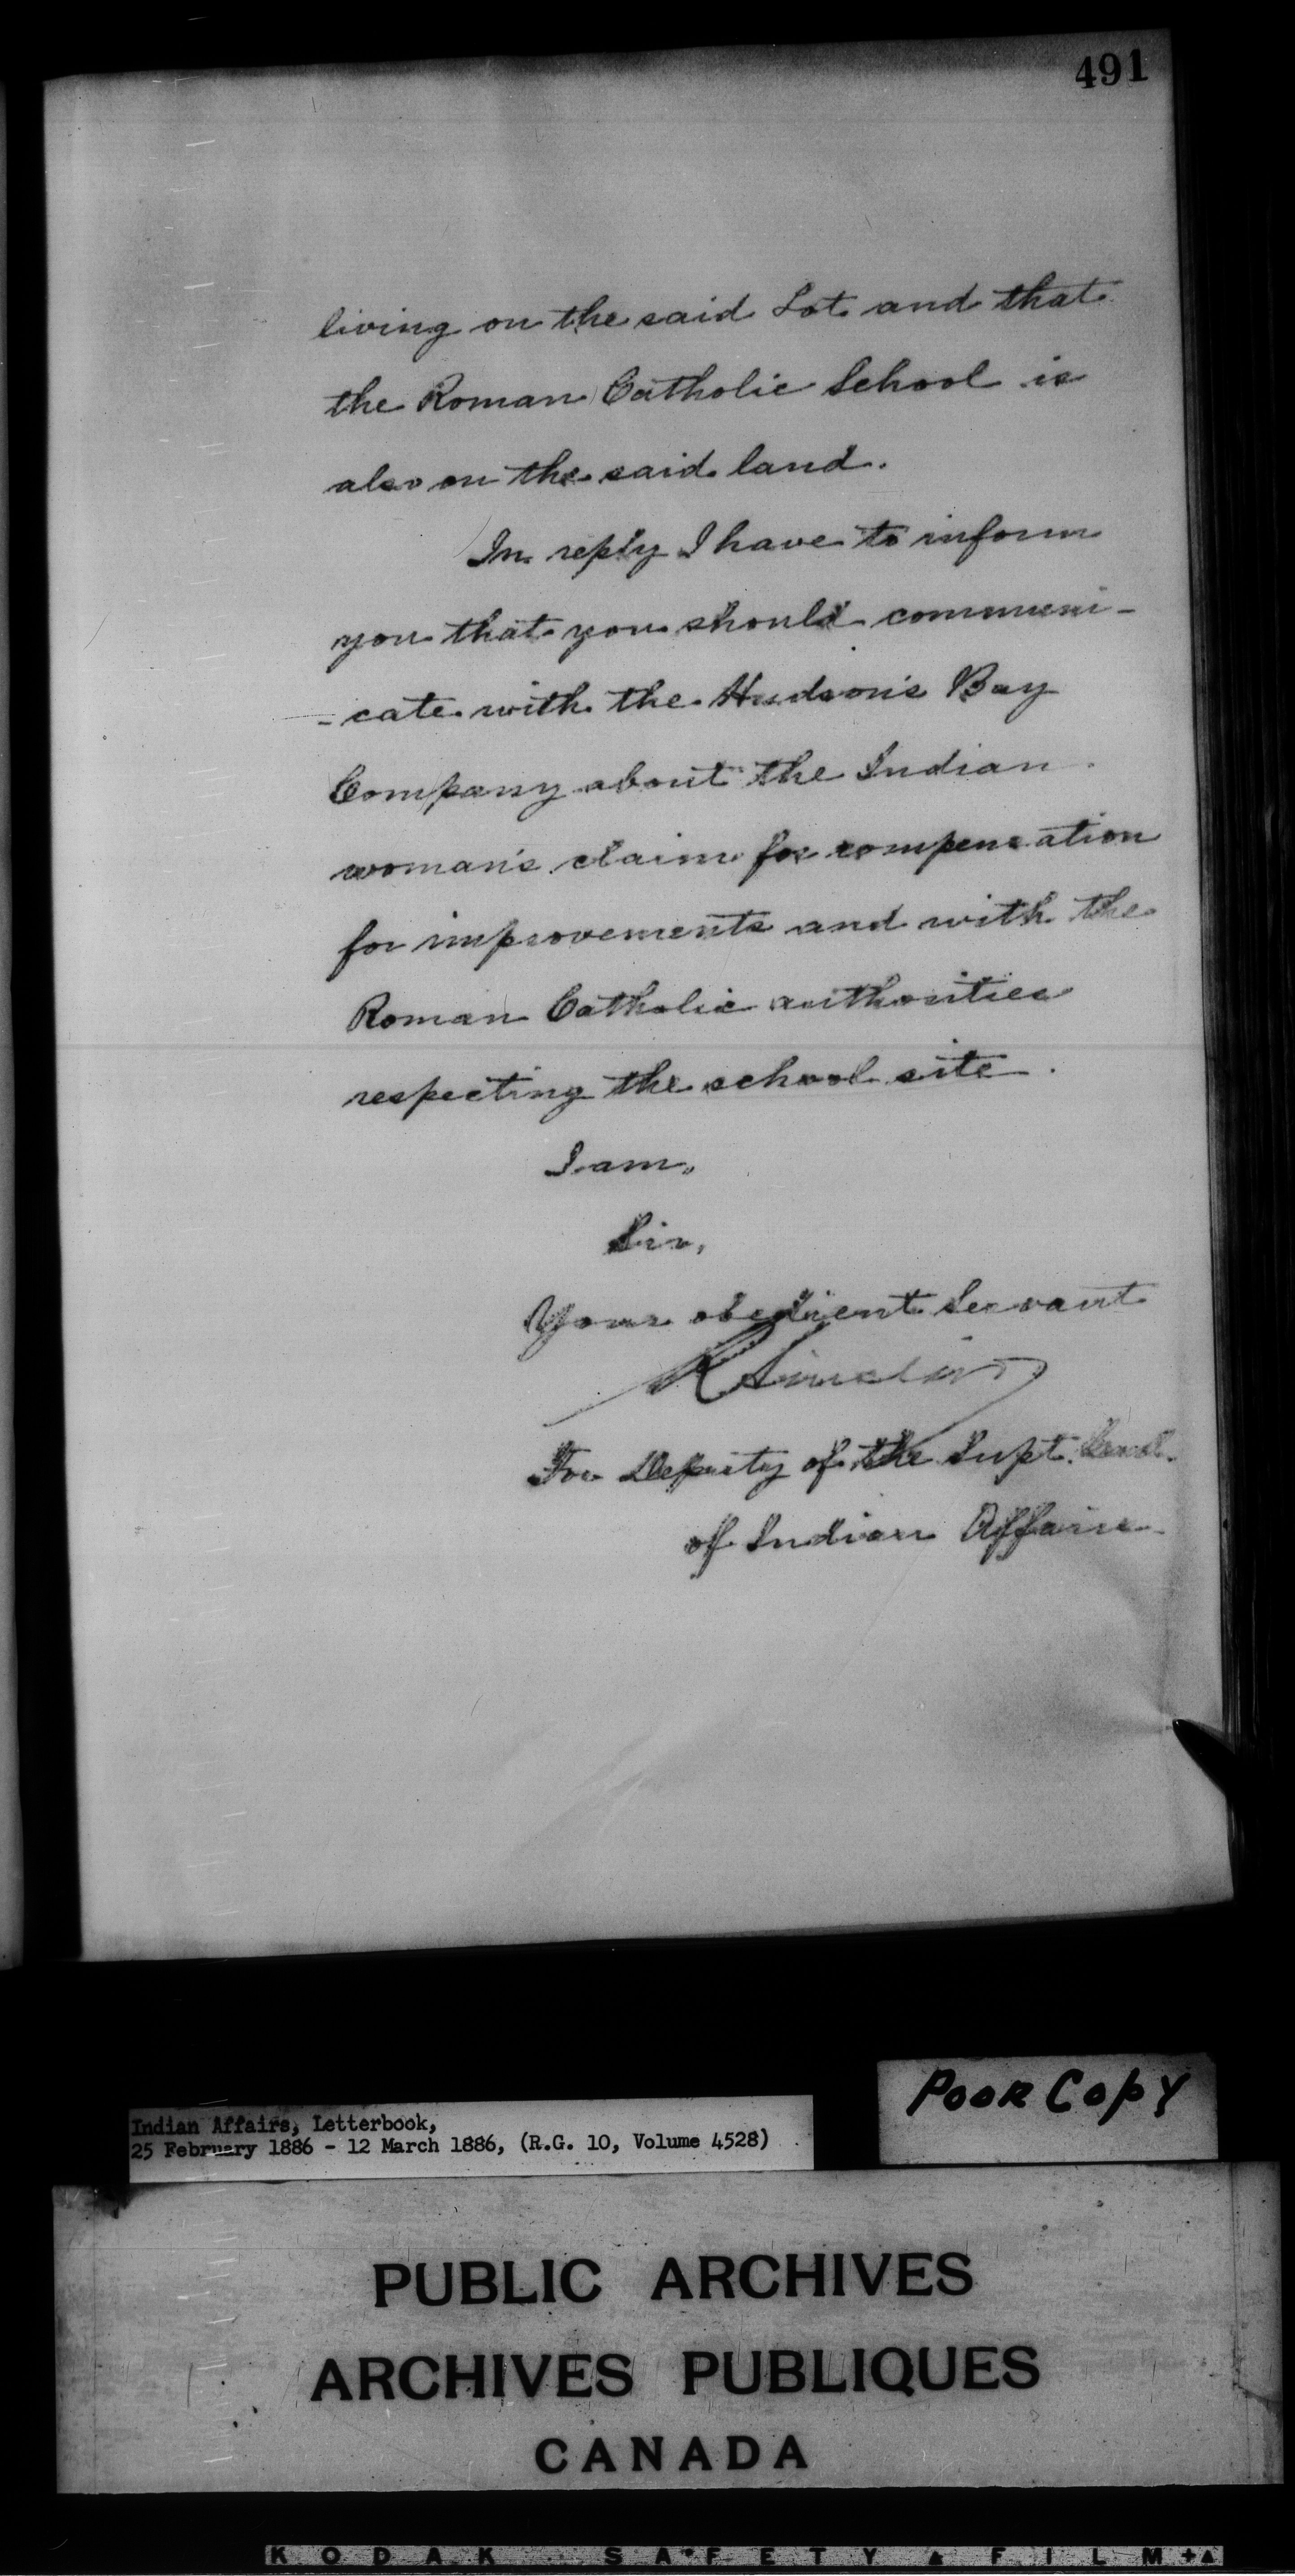 491
living on the said Lot and that
the Roman Catholic School is
also on the said land.
In reply I have to inform
you that you should communi-
-cate with the Hudson's Bay
Company about the Indian
woman's claim for compensation
for improvements and with the
Roman Catholic authorities
respecting the school site.
I am,
Sir,
Your obedient Servant
R Sinclair
For Deputy of the Supt. Genl.
of Indian Affairs
Poor Copy
Indian Affairs, Letterbook,
25 February 1886 - 12 March 1886, (R.G. 10, Volume 4528)
PUBLIC ARCHIVES
ARCHIVES PUBLIQUES
CANADA
KODAK SAFETY FILM